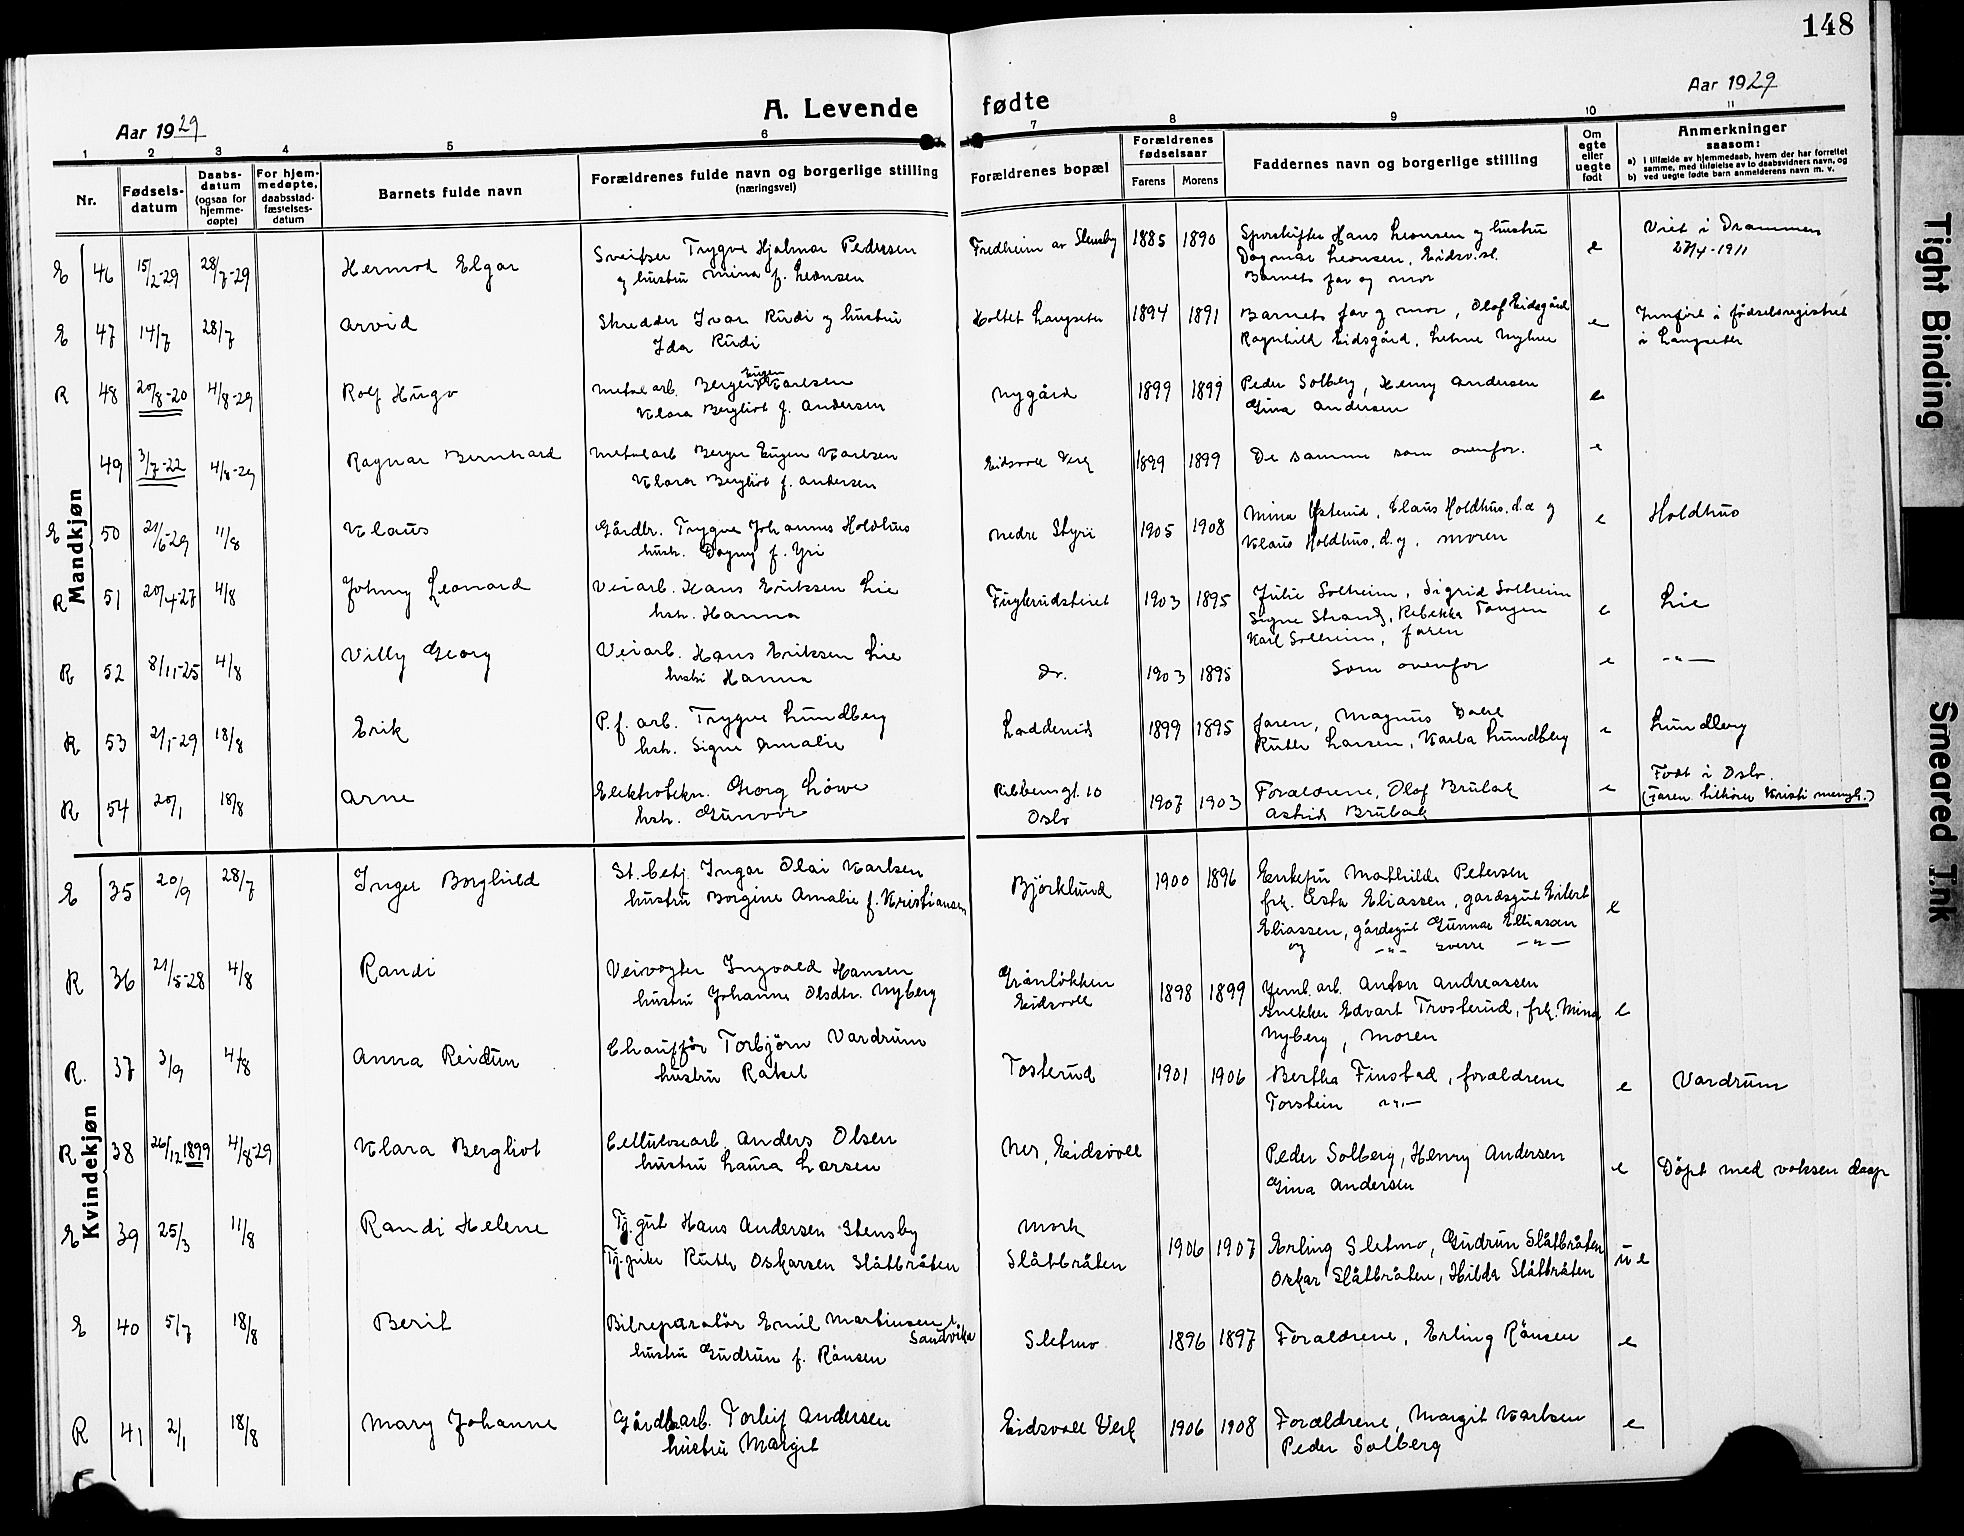 148
Aar 1929
A. Levende fødte
Aar 1929
1 2 3 4 5 6 7 8 9 10 11
Nr.
Fødsels-
datum
Daabs-
datum
(ogsaa for
hjemme-
døpte)
For hjem-
medøpte,
daabsstad-
fæstelses-
datum
Barnets fulde navn
Forældrenes fulde navn og borgerlige stilling
(næringsvei)
Forældrenes bopæl
Forældrenes
fødselsaar
Farens Morens
Faddernes navn og borgerlige stilling
Om
egte
eller
uegte
født
Anmerkninger
saasom:
a) i tilfælde av hjemmedaab, hvem der har forrettet
samme, med tilføielse av to daabsvidners navn, og
b) ved uegte fødte barn anmelderens navn m. v.
Mandkjøn
E 46 15/2-29 28/7-29 Hermod Elgar
Sveitser Trygve Hjalmar Pedersen
og hustru Mina f. Leonsen
Fredheim av Stensby 1885 1890
Sporskifter Hans Leonsen og hustru
Dagmar Leonsen, Eidsv. st.
Barnets far og mor
e
Viet i Drammen
27/4-1911
E 47 14/7 28/7 Arvid
Skredder Ivar Rudi og hustru
Ida Rudi
Holtet Langseter 1894 1891
Barnets far og mor, Olof Eidsgård
Ragnhild Eidsgård, Nyhus
e
Innført i fødselsregistret
i Langseter
R 48 20/8-20 4/8-29 Rolf Hugo
Metal arb. Berger Eugen Karlsen
Klara Bergliot f. Andersen
Nygård 1899 1899
Peder Solberg, Henry Andersen
Gina Andersen
e
49 3/7-22 4/8-29 Ragnar Bernhard
Metal arb Berger Eugen Karlsen
Klara Bergliot f. Andersen
Eidsvoll Verk 1899 1899
De samme som ovenfor.
e
E 50 21/6-29 11/8 Klaus
Gårdbr. Trygve Johannes Holdhus
hustr. Dagny f. Yri
Nedre Styri 1905 1908
Mina Østerud, Claus Holdhus, d.e og
Klaus Holdhus, d.y, moren
e
Holdhus
R 51 20/4-27 4/8 Johny Leonard
Veiarb. Hans Eriksen Lie
hstr. Hanna
1903 1895
Julie Solheim, Sigrid Solheim
Signe Strand, Rebekka Tangen
Karl Solheim, faren
e
Lie
R 52 8/11-25 4/8 Villy Georg
Veiarb. Hans Eriksen Lie
hustr Hanna
Do. 1903 1895
Som ovenfor
e
-"-
R 53 2/1-29 18/8 Erik
P. f. arb. Trygve Lundberg
hstr. Signe Amalie
Ladderud 1899 1895
faren, Magnus
Ruth Larsen, Karla Lundberg
e
Lundberg
R 54 20/1 18/8 Arne
Elektrotekn. Georg Løwe
hstr. Gunvor
Ribberngt. 10
Oslo
1907 1903
Forældrene, Olof Brubak
Astrid Brubak
e
Født i Oslo.
(Faren tilhører Kristi menigh.)
Kvindekjøn
E 35 20/9 28/7 Inger Borghild
St. betj. Ingar Olai Karlsen
hustru Borgine Amalie f. Kristiansen
Bjørklund 1900 1896
Enkefru Mathilde Petersen
frk. Asta Eliassen, gardsgut Eilert
Eliassen, gårdsgut Gunnar Elliasan
og -"- Sverre -"-
e
R 36 21/5-28 4/8 Randi
Veivogter Ingvald Hansen
hustru Johanne Olsdtr. Nyberg
Grånløkken
Eidsvoll
1898 1899
Jernb. arb. Anton Andreassen
Snekker Edvart Trosterud, frk. Mina
Nyberg, moren
e
R. 37 3/9 4/8 Anna Reidun
Chauffør Torbjørn Vardrum
hustru Rakel
Tosterud 1901 1906
Bertha Finstad, forældrene
Torstein -"-
e
Vardrum
R 38 26/12 1899 4/8-29 Klara Bergliot
Cellulosearb. Anders Olsen
hustru Laura Larsen
Nes, Eidsvoll
Peder Solberg, Henry Andersen
Gina Andersen
e
Døpt med voksen daap
E 39 25/3 11/8 Randi Helene
Tj. gut Hans Andersen Stensby
Tj. pike Ruth Oskarsen Slåtbråten
Mork
Slåtbråten
1906 1907
Erling Sletmo, Gudrun Slåtbråten
Oskar Slåtbråten, Hilda Slåtbråten
u e
E 40 5/7 18/8 Berit
Bilreparatør Emil Martinsen
Sandvika
hustru Gudrun f. Rånsen
Sletmo 1896 1897
Forældrene, Erling Rånsen
e
R 41 2/1 18/8 Mary Johanne
Gårdb.arb. Torleif Andersen
hustru Margit
Eidsvoll Verk 1906 1908
Forældrene, Margit Karlsen
Peder Solberg
e
Tight Binding
Smeared Ink